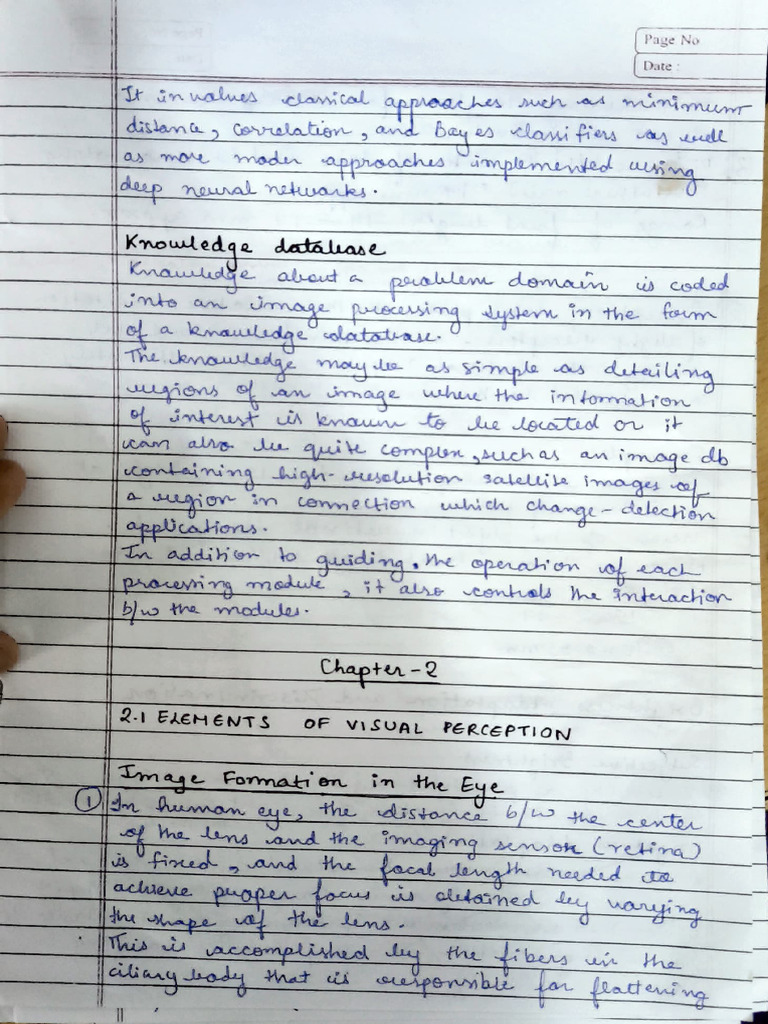 Page No
Date :
It involves classical approaches such as minimum
distance, correlation, and Bayes classifiers as well
as more moden approaches implemented using
deep neural networks.
Knowledge database
Knowledge about a problem domain is coded
into an image processing system in the form
of a knowledge database.
The knowledge may be as simple as detailing
regions of an image where the information
of interest is known to be located or it
can also be quite complex, such as an image db
containing high-resolution satellite images of
a region in connection which change-detection
applications.
In addition to guiding, the operation of each
processing module, it also controls the interaction
b/w the modules.
Chapter-2
2.1 ELEMENTS OF VISUAL PERCEPTION
Image Formation in the Eye
① In human eye, the distance b/w the center
of the lens and the imaging sensor (retina)
is fixed, and the focal length needed to
achieve proper focus is obtained by varying
the shape of the lens.
This is accomplished by the fibers in the
ciliary body that is responsible for flattening